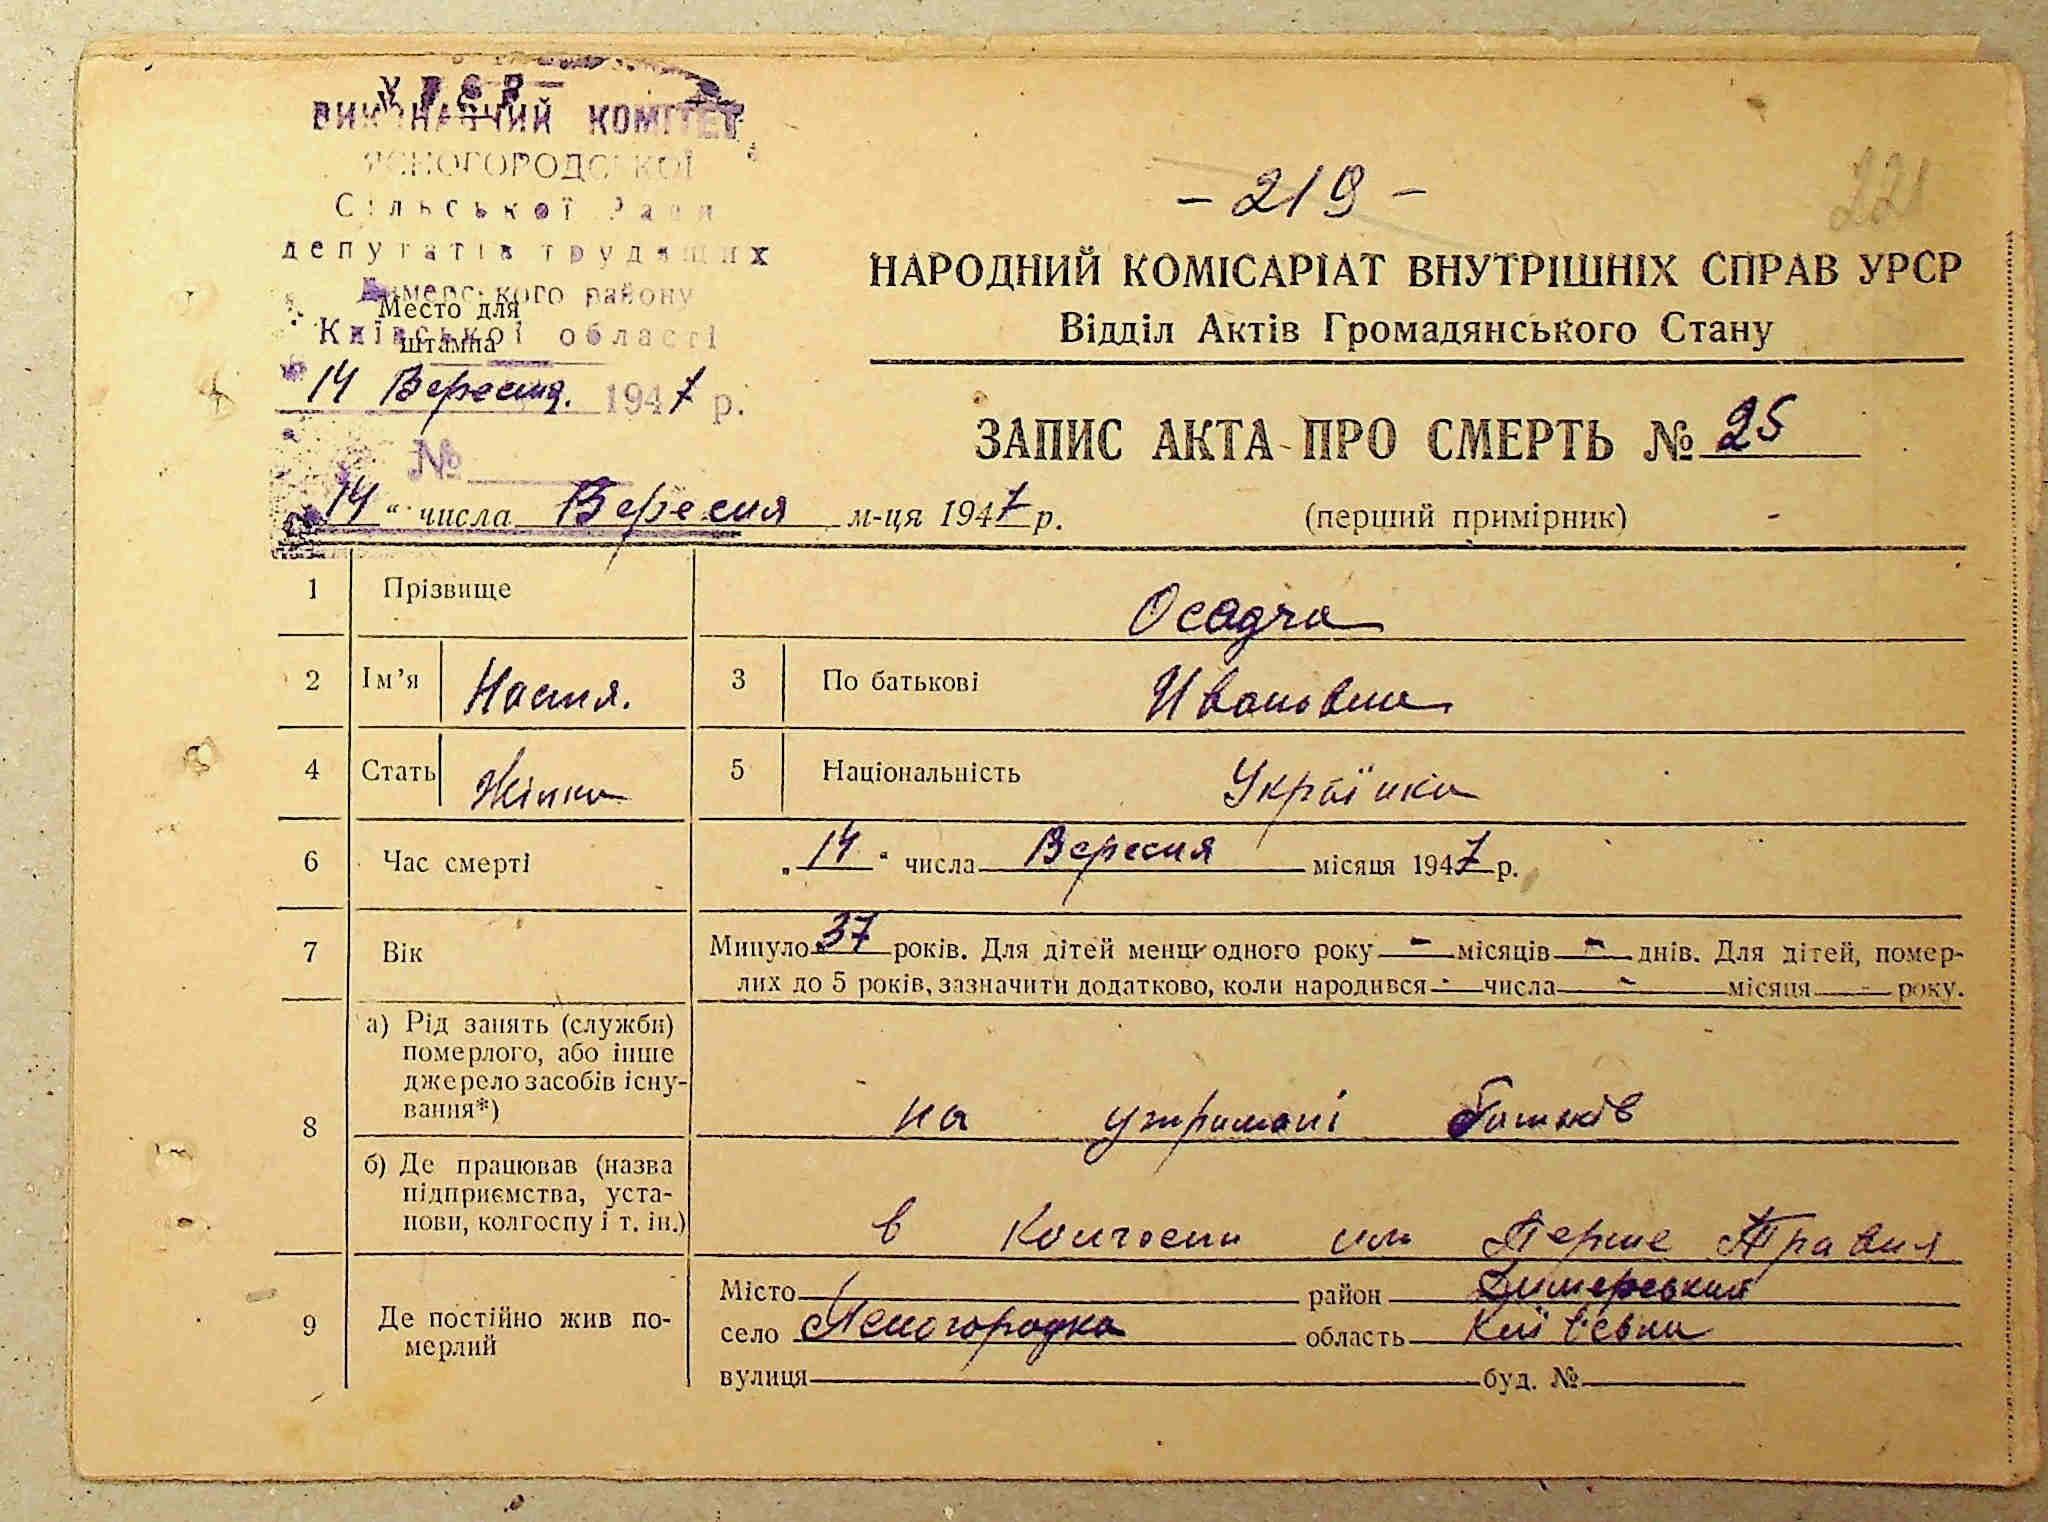 УРСР
ВИКОНАВЧИЙ КОМІТЕТ
ЯСНОГОРОДСЬКОЇ
Сільської Ради
депутатів трудящих
Димерського району
Место для
Київської області
штампа
14 Вересня. 1947 р.
№
- 219 -
221
НАРОДНИЙ КОМІСАРІАТ ВНУТРІШНІХ СПРАВ УРСР
Відділ Актів Громадянського Стану
ЗАПИС АКТА ПРО СМЕРТЬ № 25
„14“ числа Вересня м-ця 1947 р.
(перший примірник)
1 Прізвище Осадча
2 Ім'я Настя. 3 По батькові Ивановна
4 Стать Жінка 5 Національність Українка
6 Час смерті „14“ числа Вересня місяця 1947 р.
7 Вік Минуло 37 років. Для дітей менш одного року - місяців - днів. Для дітей, помер-
лих до 5 років, зазначити додатково, коли народився - числа - місяця - року.
8 а) Рід занять (служби)
померлого, або інше
джерело засобів існу-
вання*)
на утримані батьків
б) Де працював (назва
підприємства, уста-
нови, колгоспу і т. ін.)
в колгоспи им Перше Травня
9 Де постійно жив по-
мерлий
Місто район Димерський
село Ясногородка область Київська
вулиця буд. №